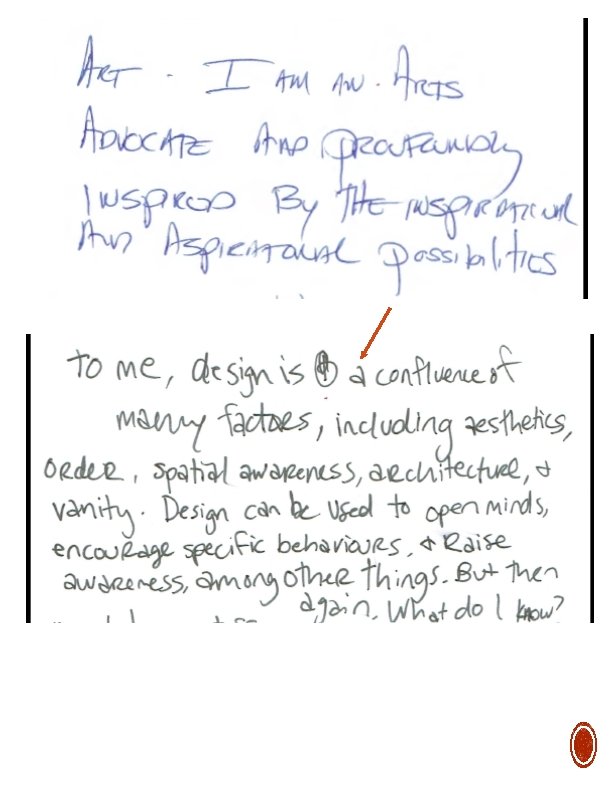 ART - I AM AN. ARTS
ADVOCATE AND PROFOUNDLY
INSPIRED BY THE INSPIRATIONAL
AND ASPIRATIONAL POSSIBILITIES
to me, design is a confluence of
many factors, including aesthetics,
order, spatial awareness, architecture, &
vanity. Design can be used to open minds,
encourage specific behaviours, & Raise
awareness, among other things. But then
again, What do I know?